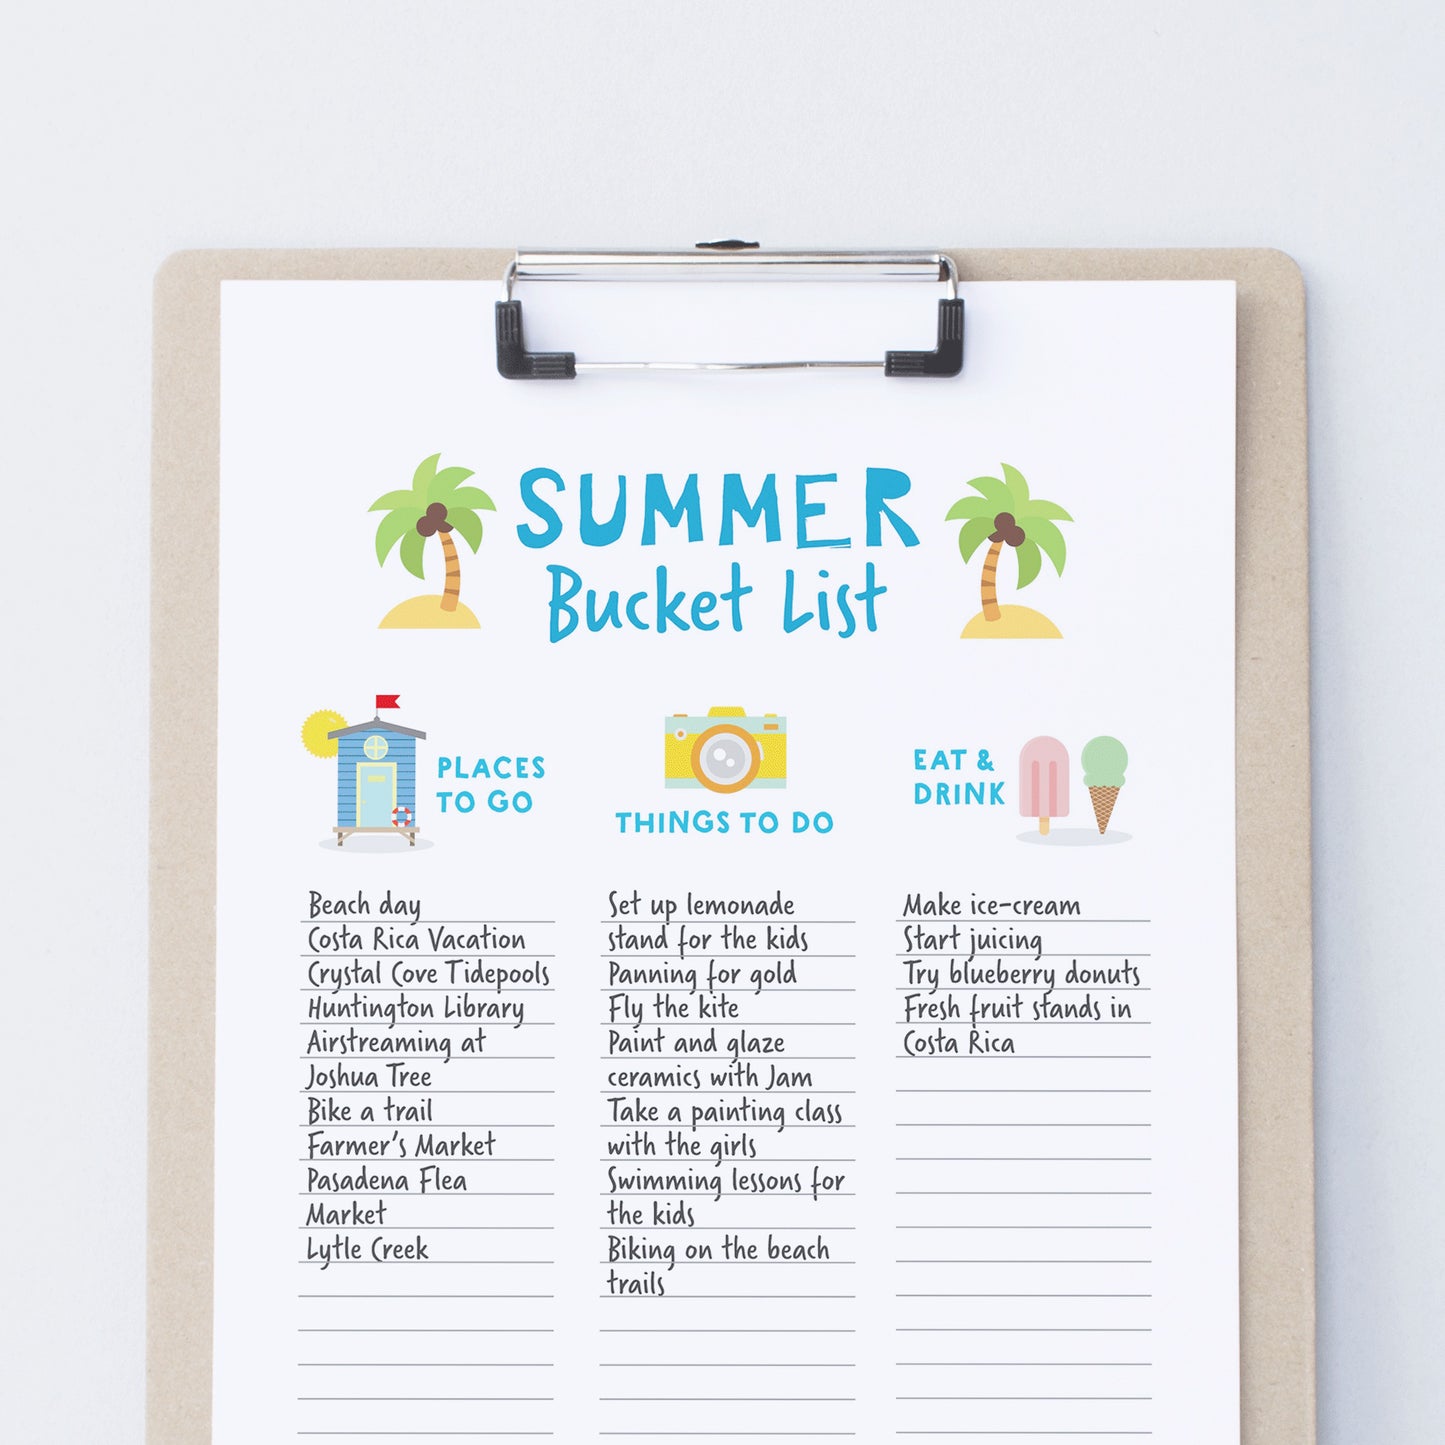 SUMMER
Bucket List
PLACES
TO GO
Beach day
Costa Rica Vacation
Crystal Cove Tidepools
Huntington Library
Airstreaming at
Joshua Tree
Bike a trail
Farmer's Market
Pasadena Flea
Market
Lytle Creek
THINGS TO DO
Set up lemonade
stand for the kids
Panning for gold
Fly the kite
Paint and glaze
ceramics with Jam
Take a painting class
with the girls
Swimming lessons for
the kids
Biking on the beach
trails
EAT &
DRINK
Make ice-cream
Start juicing
Try blueberry donuts
Fresh fruit stands in
Costa Rica